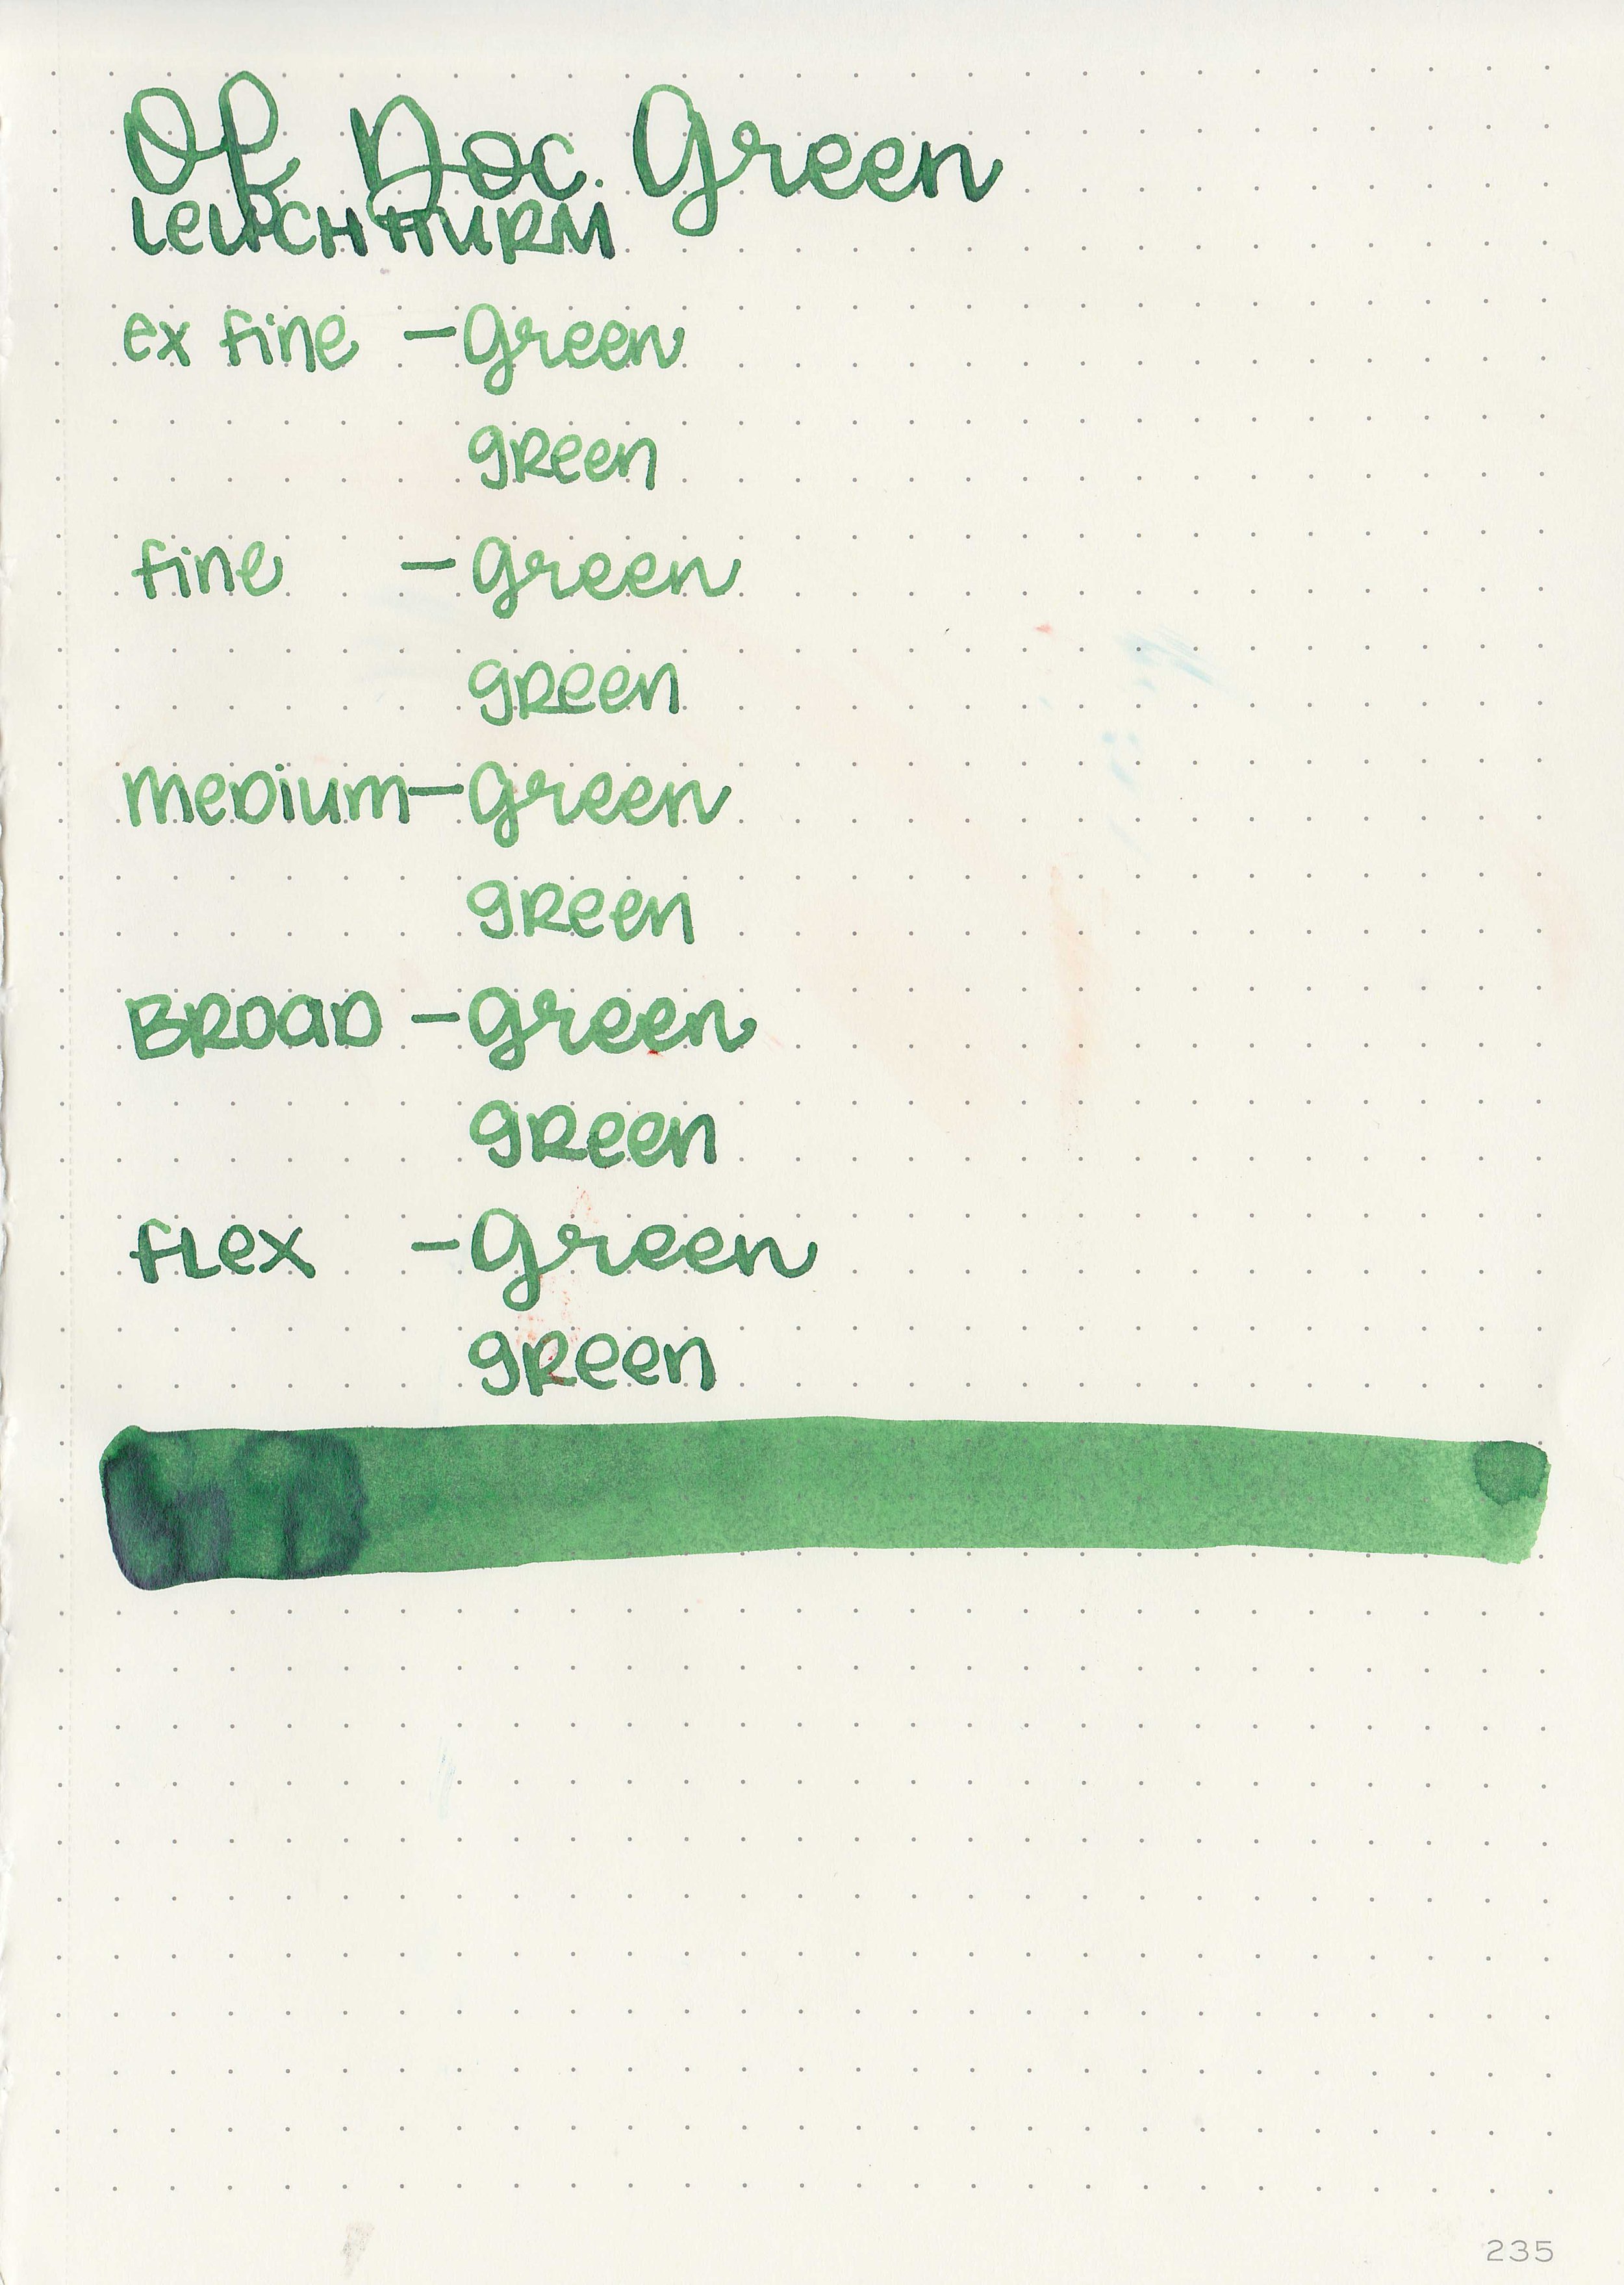 OF Doc Green
LEUCHTTURM
ex fine – Green
green
fine – green
green
medium – green
green
BROAD – green
green
flex – Green
green
235